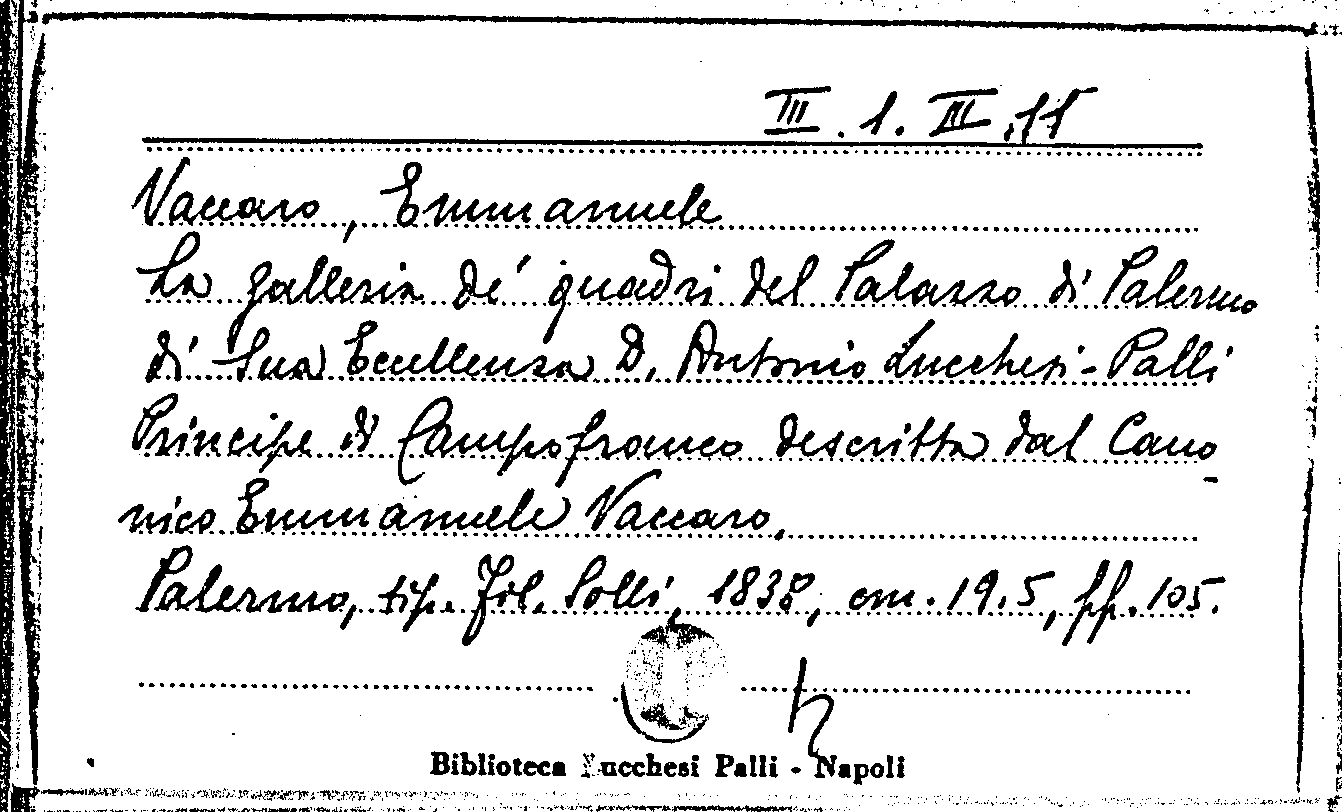 III . 1. III . 11
Vaccaro, Emmanuele
La galleria de' quadri del Palazzo di Palermo
di Sua Eccellenza D. Antonio Lucchesi-Palli
Principe di Campofranco descritta dal Cano-
nico Emmanuele Vaccaro.
Palermo, tip. Fil. Solli, 1838, cm. 19.5, pp. 105.
Biblioteca Lucchesi Palli - Napoli